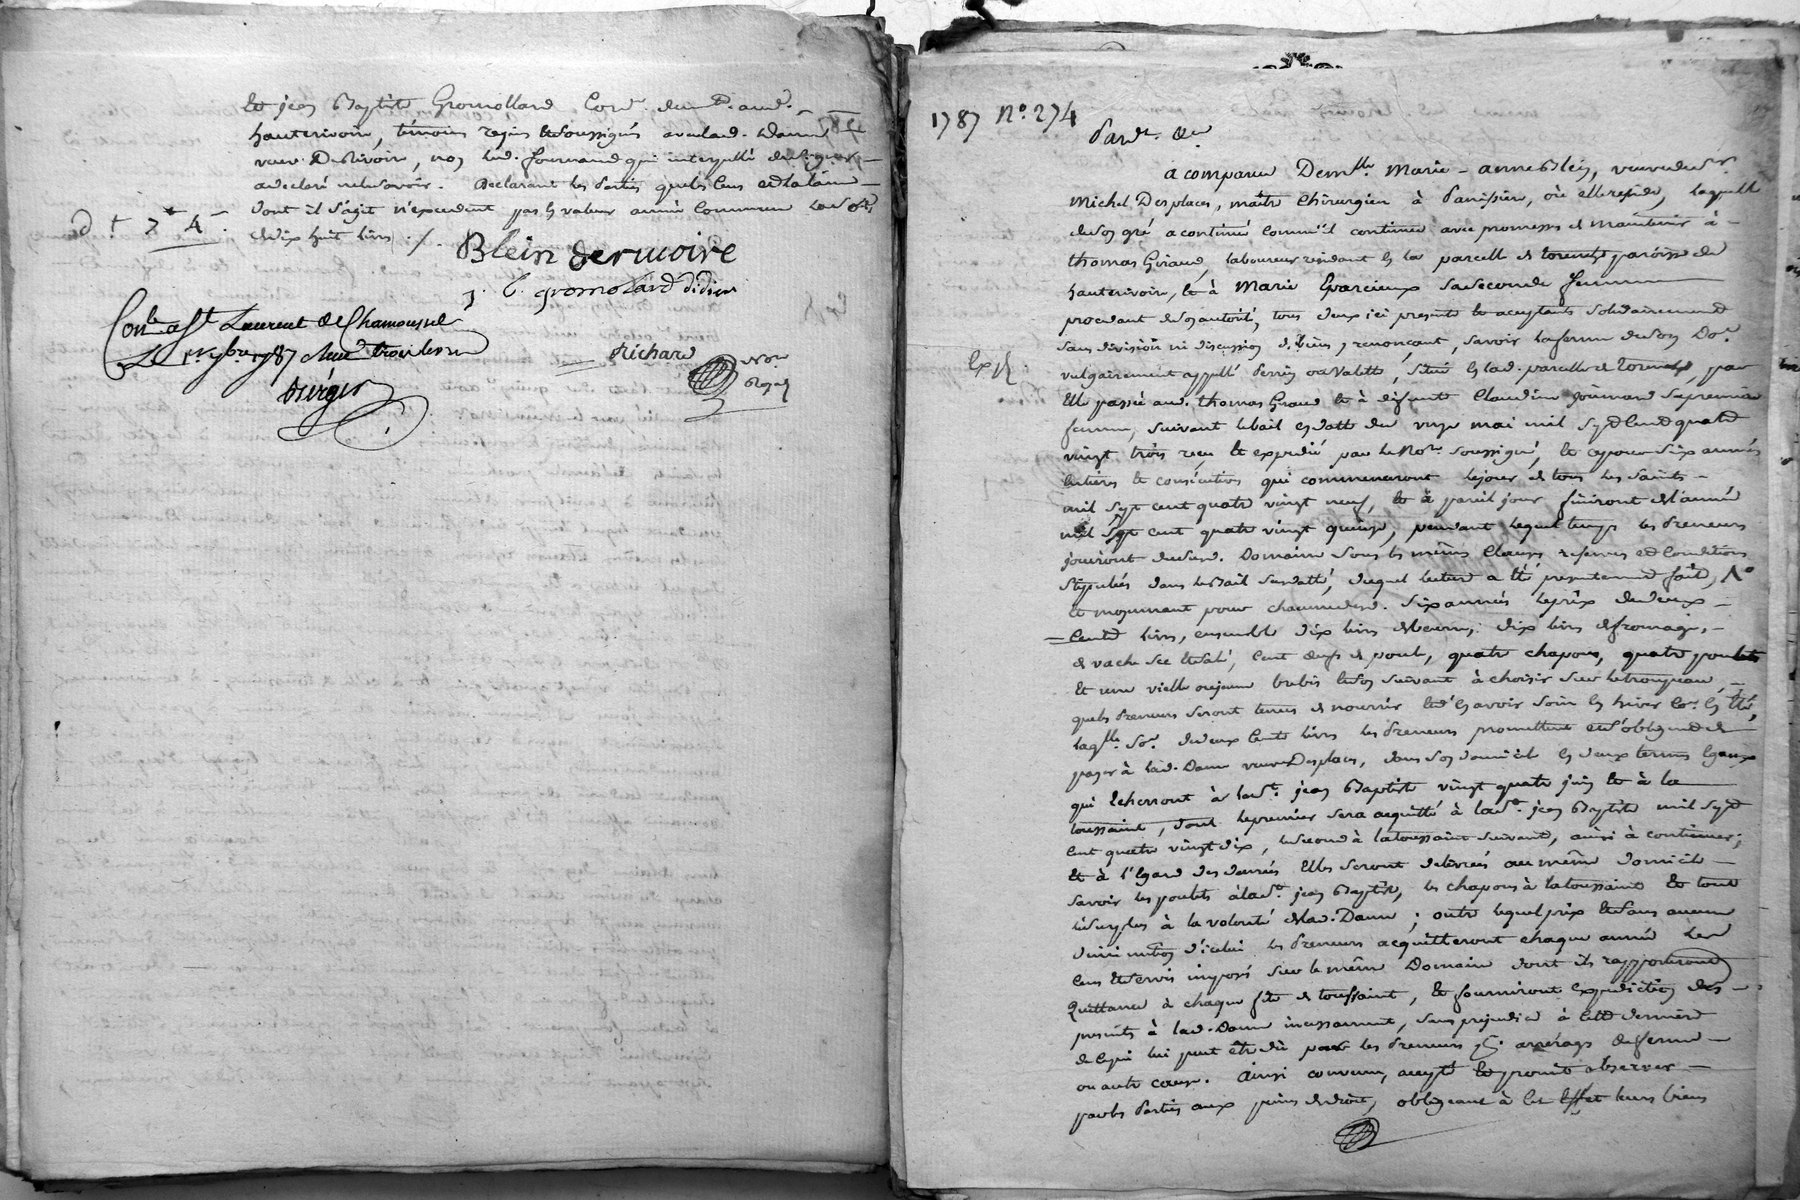 Et jean Baptiste Gromollard Cord. dem. t. aud.
hauterivoire, témoins requis et soussignés avec lad. dame
veuve Dervivoire, non led. fournand qui interpellé de signer
a declaré ne le savoir. Declarant les parties que les cens et la laine
dont il s'agit n'excedent pas en valeur année commune la so.e
de dix huit livres ./.
D t 7 4
Blein dervuoire
j. b. gromolard didier
Con.lé à St Laurent de Chamousset
Le 1.r 7bre 1787 Reçu trois livres
Richard
Not.re Royal
Bürger
1787 N.º 274
Pard.t &a
a comparu Dem.lle Marie-anne Blein, veuve du S.r
Michel Desplaces, maitre Chirurgien à Panissiere, où elle reside, laquelle
de son gré a continué comm'il continue avec promesses de maintenir à
thomas Giraud, laboureur residant en la parcelle de toranche paroisse de
hauterivoire, et à Marie Eparcieux sa seconde femme
procedant de son autorité, tous deux ici presents et acceptants solidairement
sans division ni discussion de biens, y renonçant, savoir la ferme de son Do.e
Exp.é
vulgairement appellé Perrin ou Valette, situé en lad. parcelle de toranche, par
Elle passée aud. thomas Giraud et à deffunte Claudine gournand sa premiere
femme, suivant le bail en datte du onze mai mil sept cent quatre
vingt trois reçu et expedié par le No.re soussigné, et ce pour six années
entieres et consécutives qui commenceront le jour de tous les saints
mil sept cent quatre vingt neuf, et à pareil jour finiront de l'année
mil sept cent quatre vingt quinze, pendant lequel temps les Preneurs
jouiront dud. Domaine sous les mêmes clauses reserves et Conditions
stipulées dans le Bail susdatté, duquel lecture a été presentement faite, 1.º
et moyennant pour chacune desd. six années le prix de deux
Cent livres, ensemble dix livres de beurre, dix livres de fromage,
de vache sec et salé, cent œufs de poule, quatre chapons, quatre poulets
et une vielle ou jeune brebis et son suivant à choisir sur le troupeau,
que les Preneurs seront tenus de nourrir et d'en avoir soin en hiver co.e en été,
laq.lle So.e de deux Cents livres les Preneurs promettent et s'obligent de
payer à lad. Dame veuve Desplaces, dans son domicile en deux termes Egaux
qui Echerront à la St. jean Baptiste vingt quatre juin et à la
toussaint, dont le premier sera acquitté à la St. jean Baptiste mil sept
cent quatre vingt dix, le second à la toussaint suivante, ainsi à continuer;
Et à l'Egard des denrées Elles seront delivrées au même domicile
savoir les poulets à la St. jean Baptiste, les chapons à la toussaint et tout
le surplus à la volonté de lad. Dame; outre lequel prix et sans aucune
diminution d'icelui les Preneurs acquitteront chaque année les
cens et servis imposés sur le même Domaine dont ils rapporteront
Quittance à chaque fête de toussaint, et fourniront expedition des
presentes à lad. Dame incessamment, sans prejudice à cette derniere
de ce qui lui peut être dû par les Preneurs p.r arrérages de ferme
ou autre cause. ainsi convenu, accepté et promis observer
par les Parties aux peines de droit, obligeant à cet Effet leurs biens